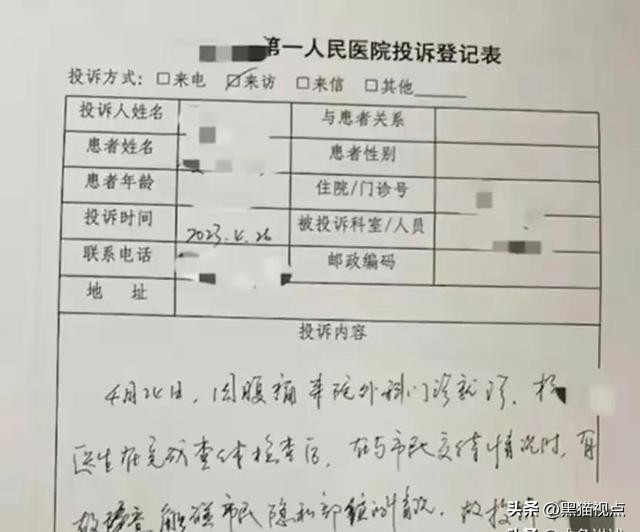 第一人民医院投诉登记表
投诉方式：□来电 ☑来访 □来信 □其他
投诉人姓名 与患者关系
患者姓名 患者性别
患者年龄 住院/门诊号
投诉时间 2023.4.26 被投诉科室/人员
联系电话 邮政编码
地 址
投诉内容
4月26日，因腹痛来院外科门诊就诊，杨
医生在完成查体检查后，在与市民交代情况时，有
故意触碰市民隐私部位的情况，故投
头条 @黑猫视点